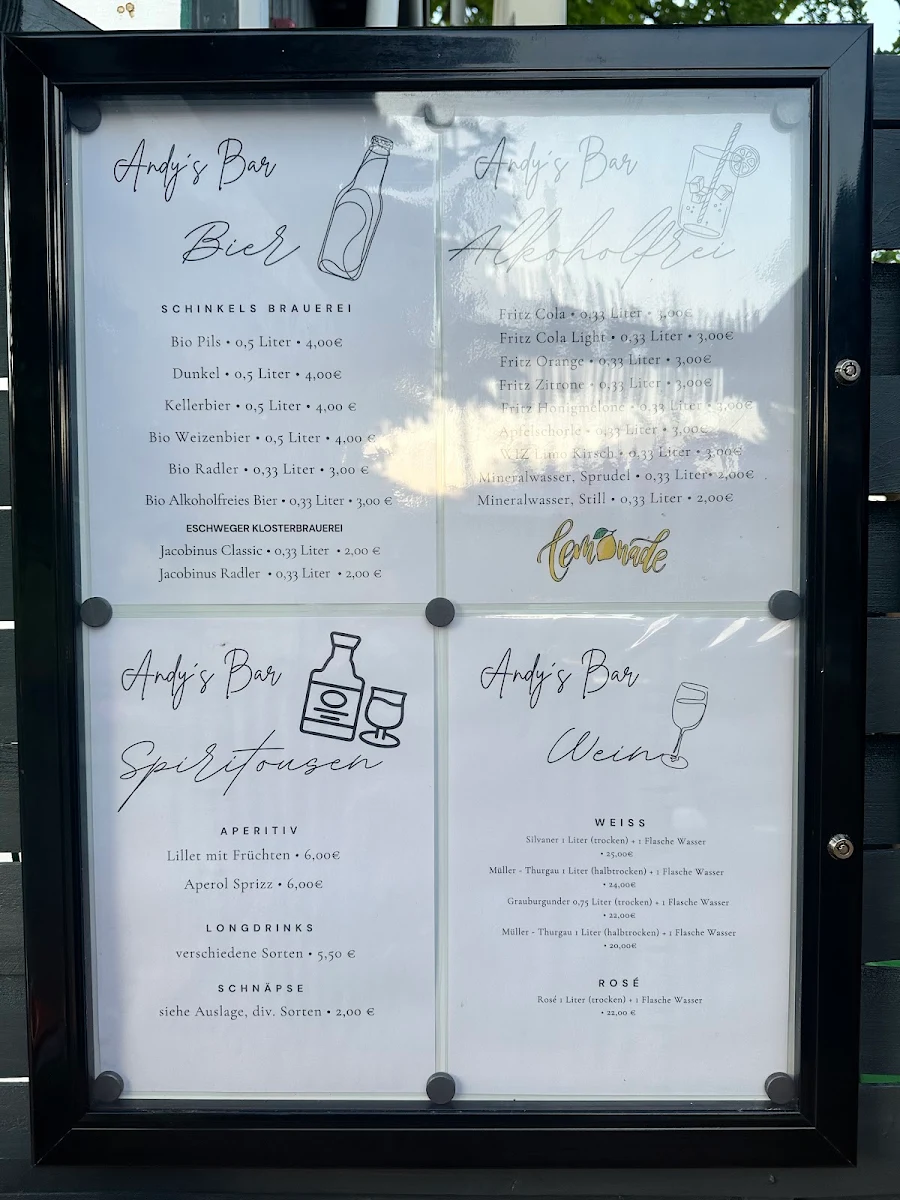 Andy's Bar
Bier
SCHINKELS BRAUEREI
Bio Pils • 0,5 Liter • 4,00€
Dunkel • 0,5 Liter • 4,00€
Kellerbier • 0,5 Liter • 4,00 €
Bio Weizenbier • 0,5 Liter • 4,00 €
Bio Radler • 0,33 Liter • 3,00 €
Bio Alkoholfreies Bier • 0,33 Liter • 3,00 €
ESCHWEGER KLOSTERBRAUEREI
Jacobinus Classic • 0,33 Liter • 2,00 €
Jacobinus Radler • 0,33 Liter • 2,00 €
Andy's Bar
Alkoholfrei
Fritz Cola • 0,33 Liter • 3,00€
Fritz Cola Light • 0,33 Liter • 3,00€
Fritz Orange • 0,33 Liter • 3,00€
Fritz Zitrone • 0,33 Liter • 3,00€
Fritz Honigmelone • 0,33 Liter • 3,00€
Apfelschorle • 0,33 Liter • 3,00€
WIZ Limo Kirsch • 0,33 Liter • 3,00€
Mineralwasser, Sprudel • 0,33 Liter • 2,00€
Mineralwasser, Still • 0,33 Liter • 2,00€
lemonade
Andy's Bar
Spirituosen
APERITIV
Lillet mit Früchten • 6,00€
Aperol Sprizz • 6,00€
LONGDRINKS
verschiedene Sorten • 5,50 €
SCHNÄPSE
siehe Auslage, div. Sorten • 2,00 €
Andy's Bar
Wein
WEISS
Silvaner 1 Liter (trocken) + 1 Flasche Wasser
• 25,00€
Müller - Thurgau 1 Liter (halbtrocken) + 1 Flasche Wasser
• 24,00€
Grauburgunder 0,75 Liter (trocken) + 1 Flasche Wasser
• 22,00€
Müller - Thurgau 1 Liter (halbtrocken) + 1 Flasche Wasser
• 20,00€
ROSÉ
Rosé 1 Liter (trocken) + 1 Flasche Wasser
• 22,00 €